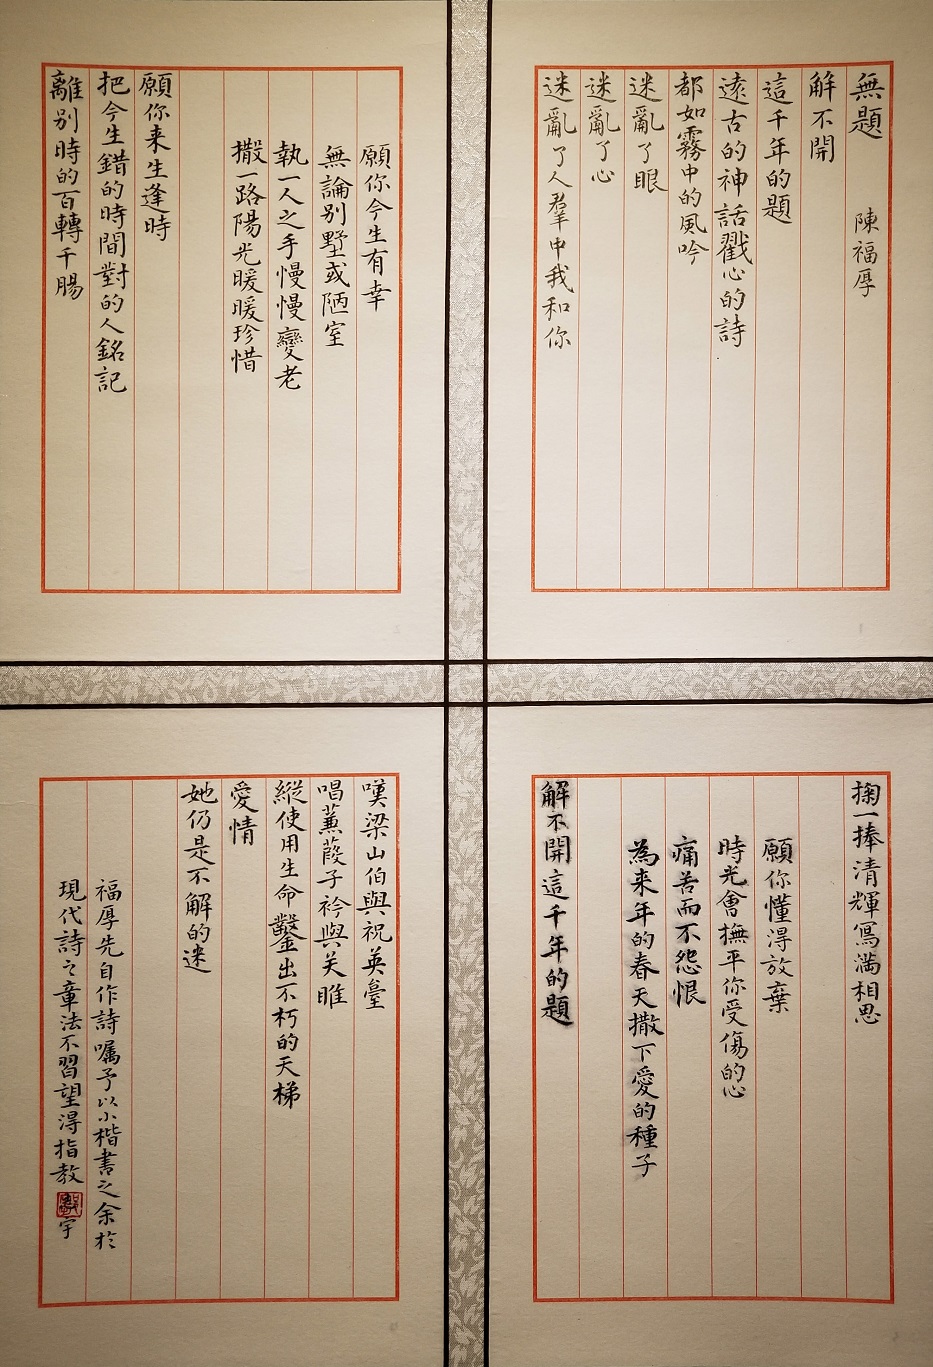 無題 陳福厚
解不開
這千年的題
遠古的神話戳心的詩
都如霧中的風吟
迷亂了眼
迷亂了心
迷亂了人羣中我和你
願你今生有幸
無論別墅或陋室
執一人之手慢慢變老
撒一路陽光暖暖珍惜
願你来生逢時
把今生錯的時間對的人銘記
離別時的百轉千腸
掬一捧清輝寫滿相思
願你懂得放棄
時光會撫平你受傷的心
痛苦而不怨恨
為来年的春天撒下愛的種子
解不開這千年的題
嘆梁山伯與祝英臺
唱蒹葭子衿與关雎
縱使用生命鑿出不朽的天梯
愛情
她仍是不解的迷
福厚先自作詩囑予以小楷書之余於
現代詩之章法不習望得指教 宇